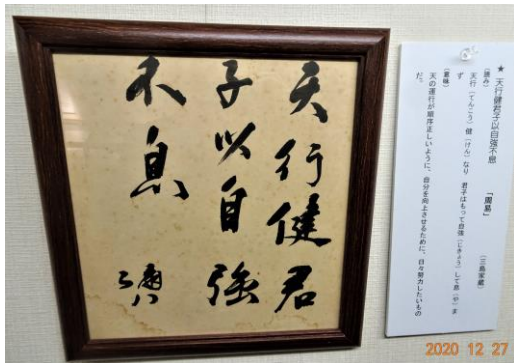 天行健君
子以自強
不息
★ 天行健君子以自強不息
「周易」 (三島家蔵)
(読み)
天行(てんこう)健(けん)なり 君子はもって自強(じきょう)して息(や)ま
ず
(意味)
天の運行が順序正しいように、自分を向上させるために、日々努力したいもの
だ。
2020 12 27